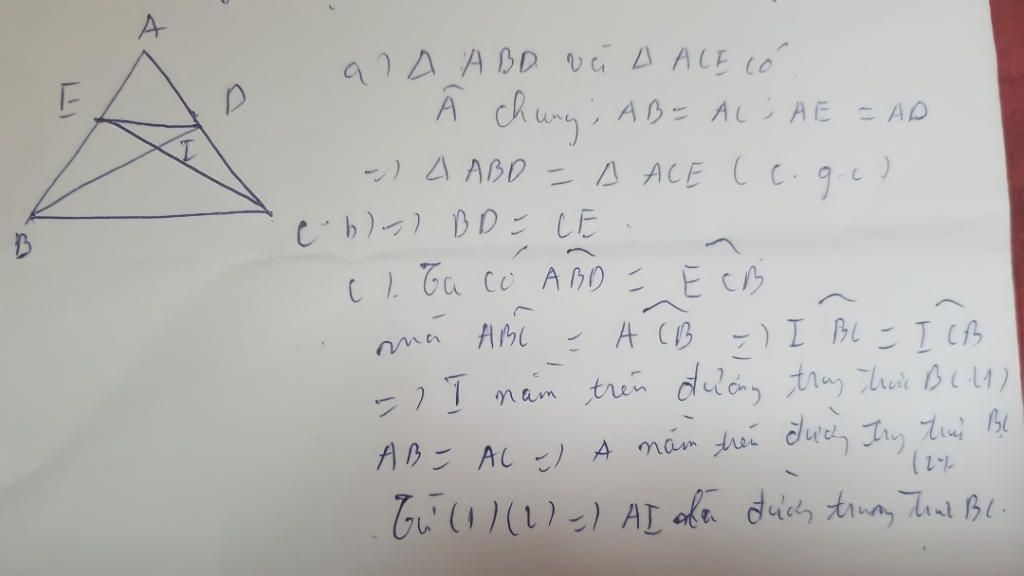 A
E
D
I
B
C
a) Δ ABD và Δ ACE có
Â chung; AB = AC; AE = AD
=) Δ ABD = Δ ACE (c.g.c)
b) =) BD = CE.
c). Ta có ABD̂ = EĈB
mà ABĈ = AĈB =) IB̂C = IĈB
=) I nằm trên đường trung trực BC (1)
AB = AC =) A nằm trên đường trung trực BC
(2)
Từ (1)(2) =) AI là đường trung trực BC.